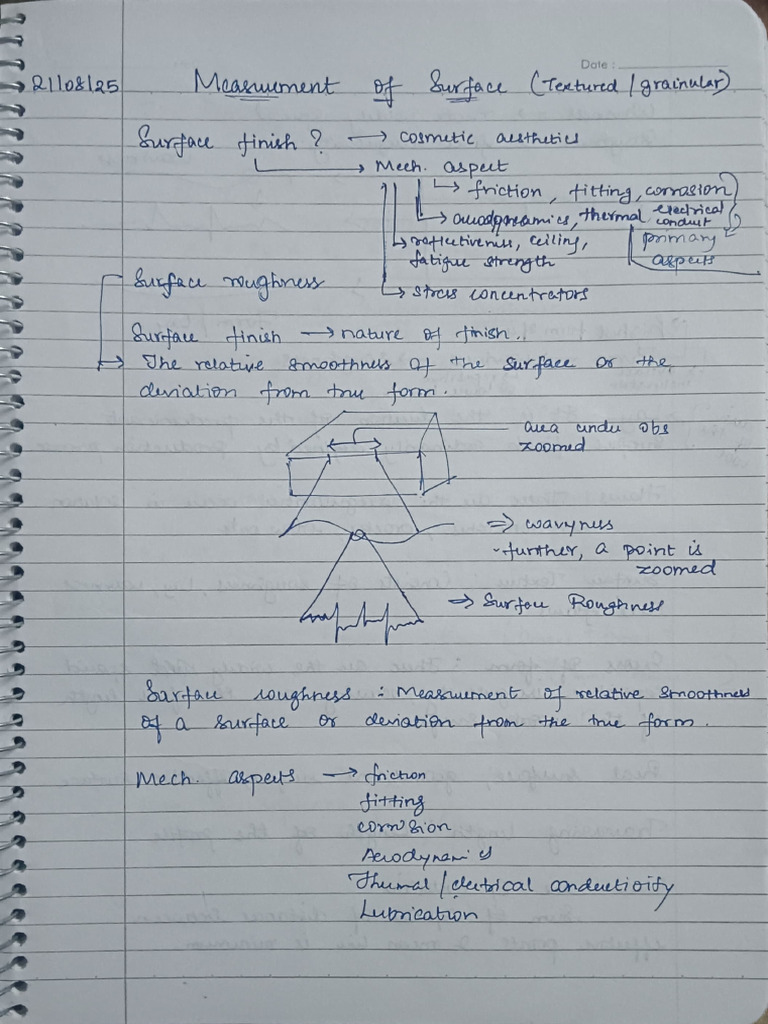 Date :
21/08/25 Measurement of Surface (Textured / grainular)
Surface finish ? → cosmetic aesthetics
→ Mech. aspect
→ friction, fitting, corrasion
→ aerodynamics, thermal electrical conduct
→ reflectiveness, ceiling, primary
fatigue strength aspects
Surface roughness → stress concentrators
Surface finish → nature of finish.
→ The relative smoothness of the surface or the
deviation from true form.
area under obs
zoomed
⇒ wavyness
- further, a point is
zoomed
⇒ Surface Roughness
Surface roughness : Measurement of relative smoothness
of a surface or deviation from the true form.
Mech. aspects → friction
fitting
corrosion
Aerodynamics
Thermal / electrical conductivity
Lubrication